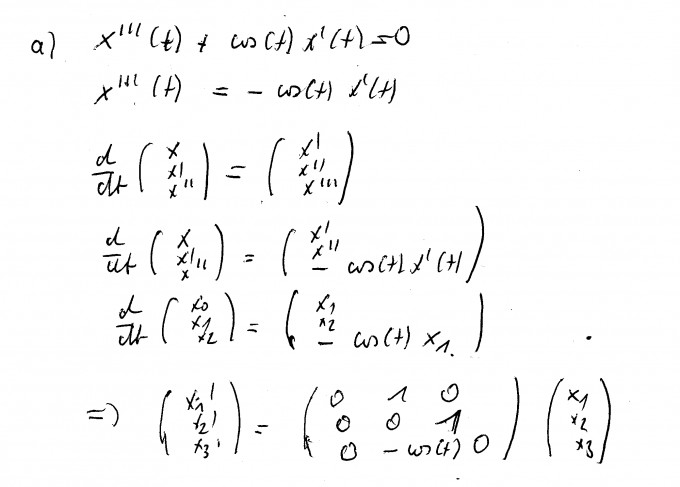 a) x'''(t) + cos(t) x'(t) = 0
x'''(t) = - cos(t) x'(t)
d/dt (x x' x'') = (x' x'' x''')
d/dt (x x' x'') = (x' x'' - cos(t) x'(t))
d/dt (x0 x1 x2) = (x1 x2 - cos(t) x1.)
=> (x1' x2' x3') = (0 1 0 0 0 1 0 -cos(t) 0) (x1 x2 x3)